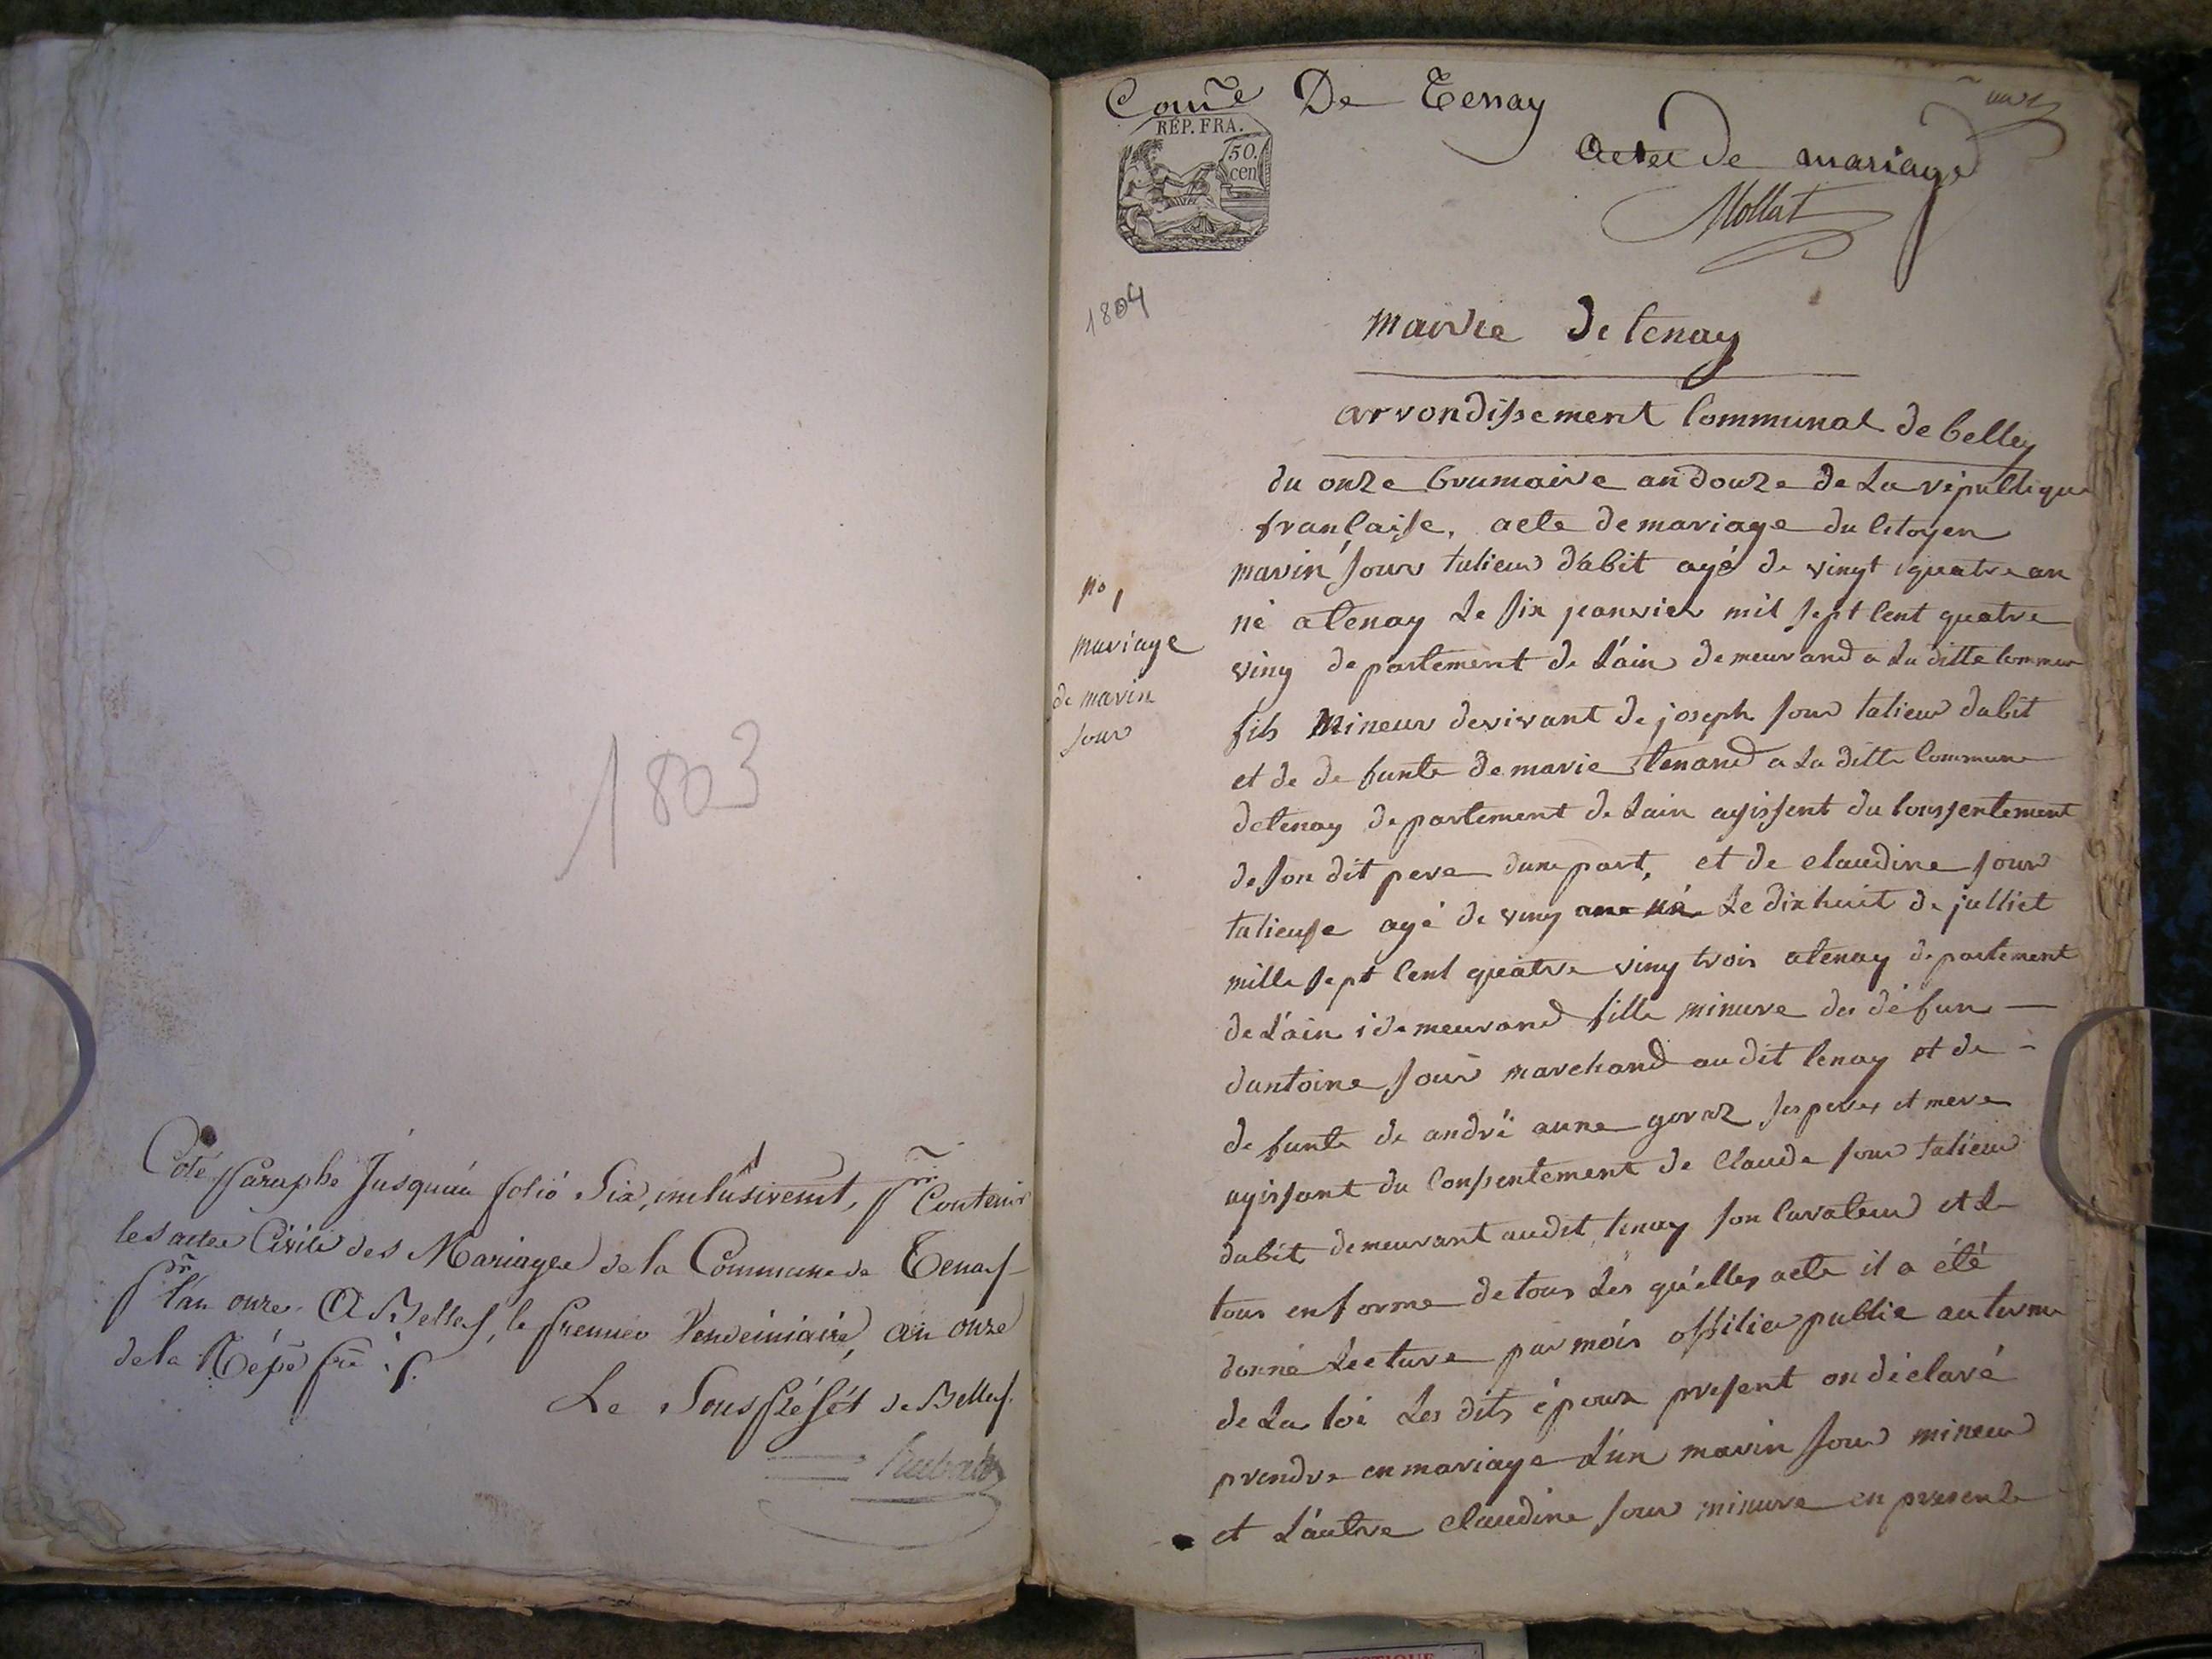 1803
Coté paraphé Jusqu'au folio Six, inclusivement, pr. Contenir
les actes Civils des Mariages de la Commune de Tenay
pr l'an onze. A Belley, le premier Vendemiaire, an onze
de la Rép. fr.
Le Sous préfét de Belley.
Coune De Tenay
RÉP. FRA.
50.
cent
actes de mariage
Mollat
1804
mairie de tenay
arrondissement Communal de belley
no 1
mariage
de marin
Jour
du onze brumaire an douze de La république
française, acte de mariage du Citoyen
marin Jour talieur d'abit agé de vingt quatre an
né a tenay Le six janvier mil sept Cent quatre
ving departement de L'ain demeurand a La ditte Commun
fils mineur devivant de joseph Jour talieur dabit
et de defunte de marie tenand a La ditte Commune
de tenay departement de Lain agissent du Conssentement
de son dit pere dune part, et de claudine Jour
talieuse agé de ving ane né Le dix huit de julliet
mille sept Cent quatre ving trois a tenay departement
de L'ain i demeurand fille minure des défun
dantoine Jour marchand au dit tenay et de
defunte de andré anne goraz ses peres et mere
agissant du Consentement de Claude Jour talieur
dabit demeurant audit tenay son Curateur et Le
tous en forme de tous Les quélles acte il a été
donné Lecture par mois offilier public au terme
de La loi Les dits époux present on déclaré
prendre en mariage L'un marin Jour mineur
et L'autre claudine Jour minure en presence